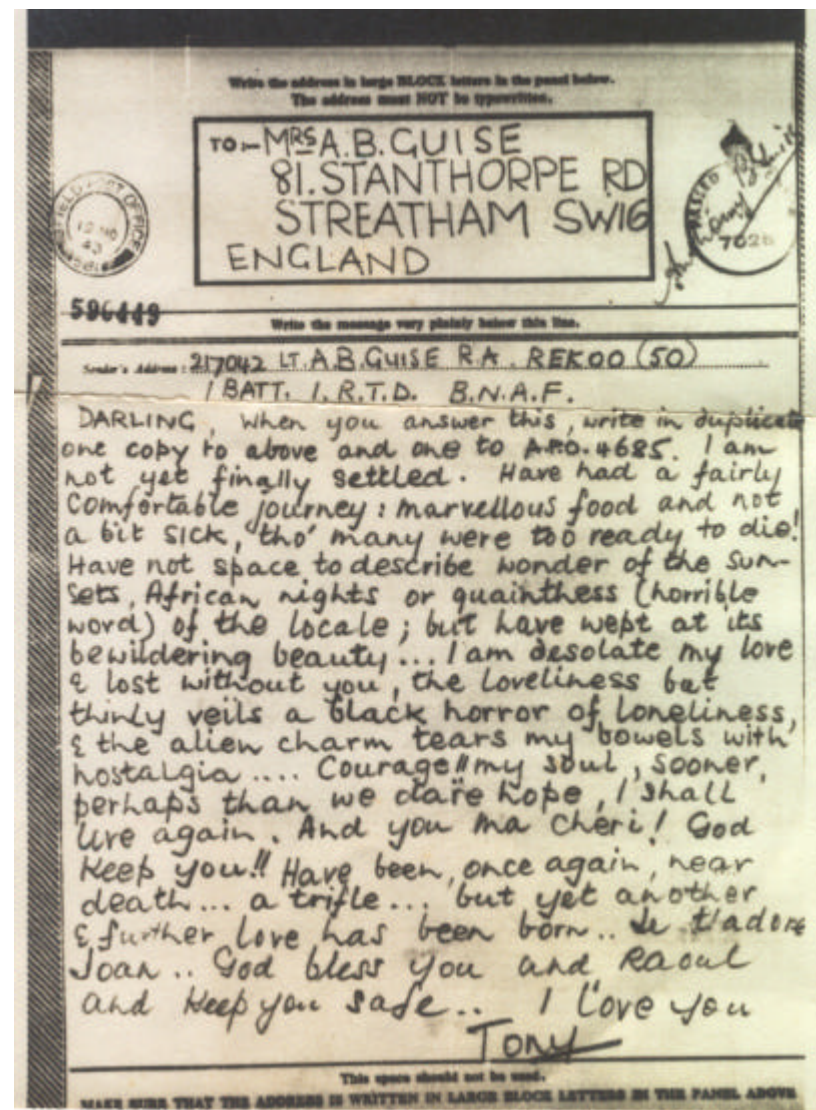 Write the address in large BLOCK letters in the panel below.
The address must NOT be typewritten.
TO:- MRS A.B. GUISE
81. STANTHORPE RD
STREATHAM SW16
ENGLAND
FIELD POST OFFICE
43
PASSED
7026
596449
Write the message very plainly below this line.
Sender's Address: 217042 LT. A.B. GUISE R.A. REKOO (50)
1 BATT. 1. R.T.D. B.N.A.F.
DARLING, When you answer this, write in duplicate
one copy to above and one to A.P.O. 4685. I am
not yet finally settled. Have had a fairly
comfortable journey: marvellous food and not
a bit sick, tho' many were too ready to die!
Have not space to describe wonder of the sun-
sets, African nights or quaintness (horrible
word) of the locale; but have wept at its
bewildering beauty... I am desolate my love
& lost without you, the loveliness but
thinly veils a black horror of loneliness,
& the alien charm tears my bowels with
nostalgia.... Courage!! my soul, sooner,
perhaps than we dare hope, I shall
live again. And you ma cheri! God
Keep you!! Have been, once again, near
death... a trifle... but yet another
& further love has been born.. Je t'adore
Joan.. God bless you and Raoul
and keep you safe.. I love you
Tony
This space should not be used.
MAKE SURE THAT THE ADDRESS IS WRITTEN IN LARGE BLOCK LETTERS IN THE PANEL ABOVE